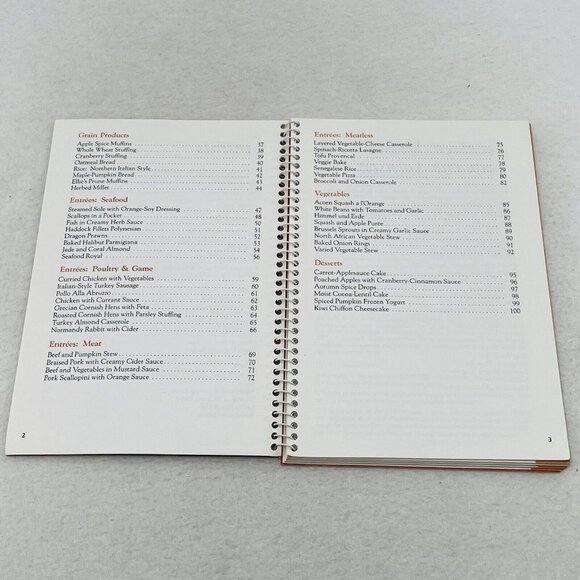 Grain Products
Apple Spice Muffins 37
Whole Wheat Stuffing 38
Cranberry Stuffing 39
Oatmeal Bread 40
Rice: Northern Italian Style 41
Maple-Pumpkin Bread 42
Ellie's Prune Muffins 43
Herbed Millet 44
Entrées: Seafood
Steamed Sole with Orange-Soy Dressing 47
Scallops in a Pocket 48
Fish in Creamy Herb Sauce 50
Haddock Fillets Polynesian 51
Dragon Prawns 52
Baked Halibut Parmigiana 53
Jade and Coral Almond 54
Seafood Royal 56
Entrées: Poultry & Game
Curried Chicken with Vegetables 59
Italian-Style Turkey Sausage 60
Pollo Alla Abruzzo 61
Chicken with Currant Sauce 62
Grecian Cornish Hens with Feta 63
Roasted Cornish Hens with Parsley Stuffing 64
Turkey Almond Casserole 65
Normandy Rabbit with Cider 66
Entrées: Meat
Beef and Pumpkin Stew 69
Braised Pork with Creamy Cider Sauce 70
Beef and Vegetables in Mustard Sauce 71
Pork Scallopini with Orange Sauce 72
2
Entrées: Meatless
Layered Vegetable-Cheese Casserole 75
Spinach-Ricotta Lasagne 76
Tofu Provencal 77
Veggie Bake 78
Senegalese Rice 79
Vegetable Pizza 80
Broccoli and Onion Casserole 82
Vegetables
Acorn Squash a l'Orange 85
White Beans with Tomatoes and Garlic 86
Himmel und Erde 87
Squash and Apple Purée 88
Brussels Sprouts in Creamy Garlic Sauce 89
North African Vegetable Stew 90
Baked Onion Rings 91
Varied Vegetable Stew 92
Desserts
Carrot-Applesauce Cake 95
Poached Apples with Cranberry-Cinnamon Sauce 96
Autumn Spice Drops 97
Moist Cocoa-Lentil Cake 98
Spiced Pumpkin Frozen Yogurt 99
Kiwi Chiffon Cheesecake 100
3